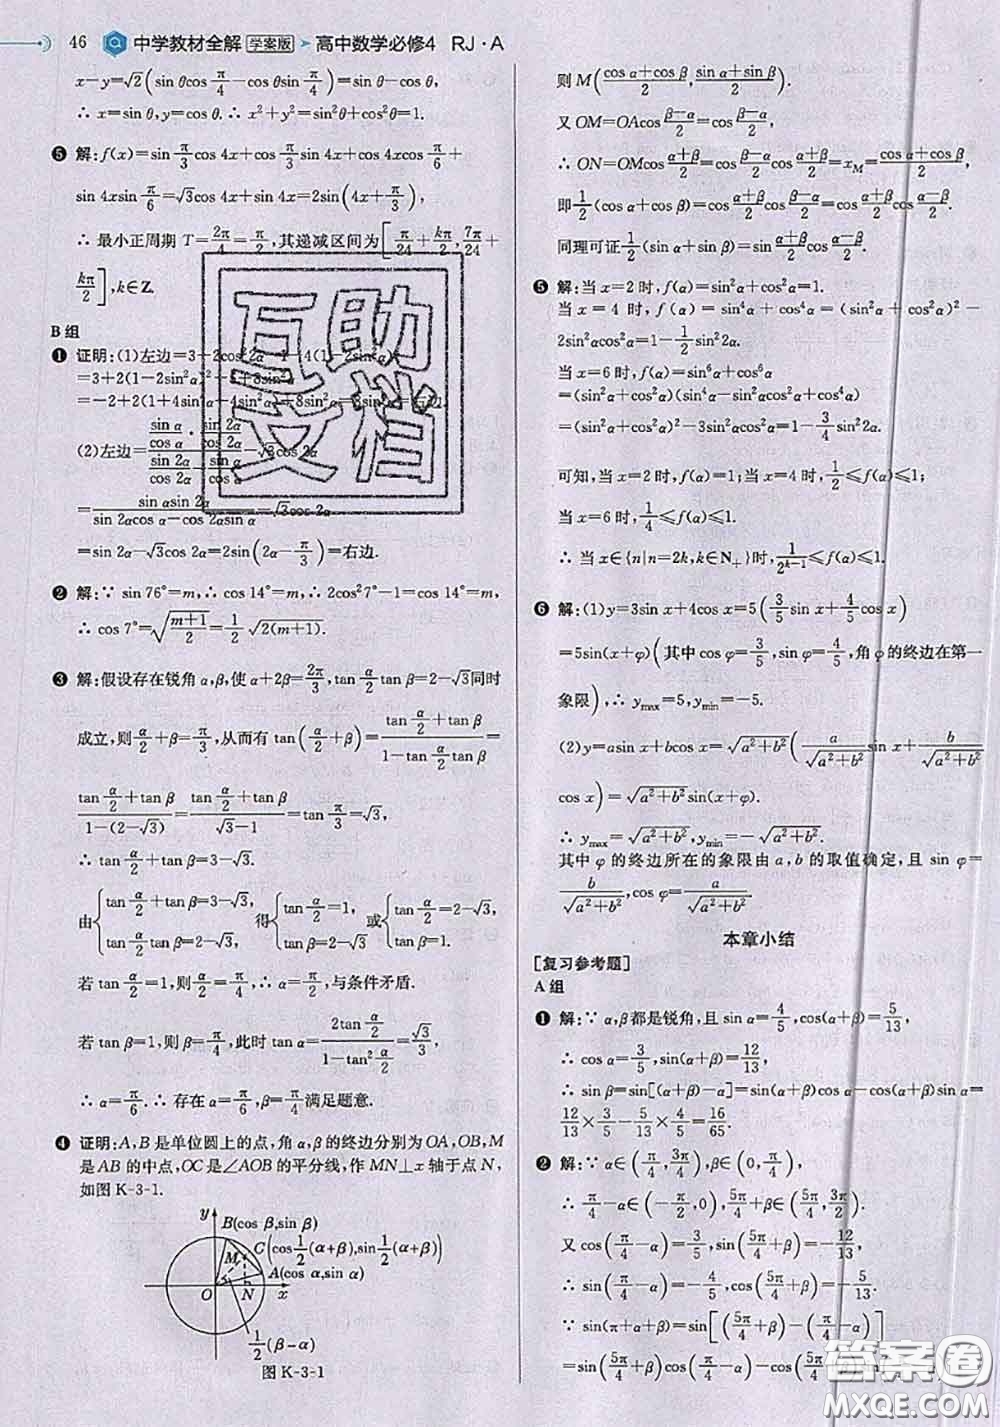 46 中学教材全解 学案版 ➤ 高中数学必修4 RJ·A
x−y=√2(sin θcos π/4−cos θsin π/4)=sin θ−cos θ,
∴ x=sin θ,y=cos θ.∴ x²+y²=sin²θ+cos²θ=1.
❺ 解:f(x)=sin π/3 cos 4x+cos π/3 sin 4x+cos 4xcos π/6+
sin 4xsin π/6=√3cos 4x+sin 4x=2sin(4x+π/3),
∴ 最小正周期 T=2π/4=π/2,其递减区间为[π/24+kπ/2,7π/24+
kπ/2],k∈Z.
B 组
❶ 证明:(1)左边=3+2cos²2α−1−4(1−2sin²α)
=3+2(1−2sin²α)²−5+8sin²α
=−2+2(1+4sin⁴α−4sin²α)+8sin²α=8sin⁴α=右边.
(2)左边=(sin α/cos α · sin 2α/cos 2α)/(sin 2α/cos 2α − sin α/cos α)−√3cos 2α
=sin αsin 2α/(sin 2αcos α−cos 2αsin α)−√3cos 2α
=sin 2α−√3cos 2α=2sin(2α−π/3)=右边.
❷ 解:∵ sin 76°=m,∴ cos 14°=m,∴ 2cos²7°−1=cos 14°=m,
∴ cos 7°=√((m+1)/2)=1/2 √(2(m+1)).
❸ 解:假设存在锐角 α,β,使 α+2β=2π/3,tan α/2 tan β=2−√3同时
成立,则α/2+β=π/3,从而有 tan(α/2+β)=(tan α/2+tan β)/(1−tan α/2 tan β)=
(tan α/2+tan β)/(1−(2−√3))=(tan α/2+tan β)/(√3−1)=tan π/3=√3,
∴ tan α/2+tan β=3−√3.
由{tan α/2+tan β=3−√3, tan α/2 tan β=2−√3, 得{tan α/2=1, tan β=2−√3 或{tan α/2=2−√3, tan β=1.
若 tan α/2=1,则 α/2=π/4,∴ α=π/2,与条件矛盾.
若 tan β=1,则 β=π/4,此时 tan α=2tan α/2/(1−tan² α/2)=√3/3,
∴ α=π/6.∴ 存在 α=π/6,β=π/4满足题意.
❹ 证明:A,B 是单位圆上的点,角 α,β 的终边分别为 OA,OB,M
是 AB 的中点,OC 是∠AOB 的平分线,作 MN⊥x 轴于点 N,
如图 K-3-1.
y
B(cos β,sin β)
M
C(cos 1/2(α+β),sin 1/2(α+β))
A(cos α,sin α)
O N x
1/2(β−α)
图 K-3-1
则 M((cos α+cos β)/2,(sin α+sin β)/2).
又 OM=OAcos (β−α)/2=cos (β−α)/2,
∴ ON=OMcos (α+β)/2=cos (β−α)/2 cos (α+β)/2=x_M=(cos α+cos β)/2,
即1/2(cos α+cos β)=cos (α+β)/2 cos (β−α)/2=cos (α+β)/2 cos (α−β)/2.
同理可证1/2(sin α+sin β)=sin (α+β)/2 cos (α−β)/2.
❺ 解:当 x=2 时,f(α)=sin²α+cos²α=1.
当 x=4 时,f(α)=sin⁴α+cos⁴α=(sin²α+cos²α)²−
2sin²αcos²α=1−1/2sin²2α.
当 x=6 时,f(α)=sin⁶α+cos⁶α
=(sin²α+cos²α)(sin⁴α−sin²αcos²α+cos⁴α)
=(sin²α+cos²α)²−3sin²αcos²α=1−3/4sin²2α.
可知,当 x=2时,f(α)=1;当 x=4时,1/2≤f(α)≤1;
当 x=6时,1/4≤f(α)≤1.
∴ 当 x∈{n|n=2k,k∈N₊}时,1/2^(k−1)≤f(α)≤1.
❻ 解:(1)y=3sin x+4cos x=5(3/5sin x+4/5cos x)
=5sin(x+φ)(其中 cos φ=3/5,sin φ=4/5,角 φ 的终边在第一
象限),∴ y_max=5,y_min=−5.
(2)y=asin x+bcos x=√(a²+b²)(a/√(a²+b²) sin x+b/√(a²+b²)
cos x)=√(a²+b²)sin(x+φ).
∴ y_max=√(a²+b²),y_min=−√(a²+b²).
其中 φ 的终边所在的象限由 a,b 的取值确定,且 sin φ=
b/√(a²+b²),cos φ=a/√(a²+b²).
本章小结
[复习参考题]
A 组
❶ 解:∵ α,β都是锐角,且 sin α=4/5,cos(α+β)=5/13,
∴ cos α=3/5,sin(α+β)=12/13.
∴ sin β=sin[(α+β)−α]=sin(α+β)cos α−cos(α+β)sin α=
12/13×3/5−5/13×4/5=16/65.
❷ 解:∵ α∈(π/4,3π/4),β∈(0,π/4),
∴ π/4−α∈(−π/2,0),5π/4+β∈(5π/4,3π/2).
又 cos(π/4−α)=3/5,sin(5π/4+β)=−12/13,
∴ sin(π/4−α)=−4/5,cos(5π/4+β)=−5/13.
∵ sin(π+α+β)=sin[(5π/4+β)−(π/4−α)]
=sin(5π/4+β)cos(π/4−α)−cos(5π/4+β)
互助文档
答案圈
MXQE.COM